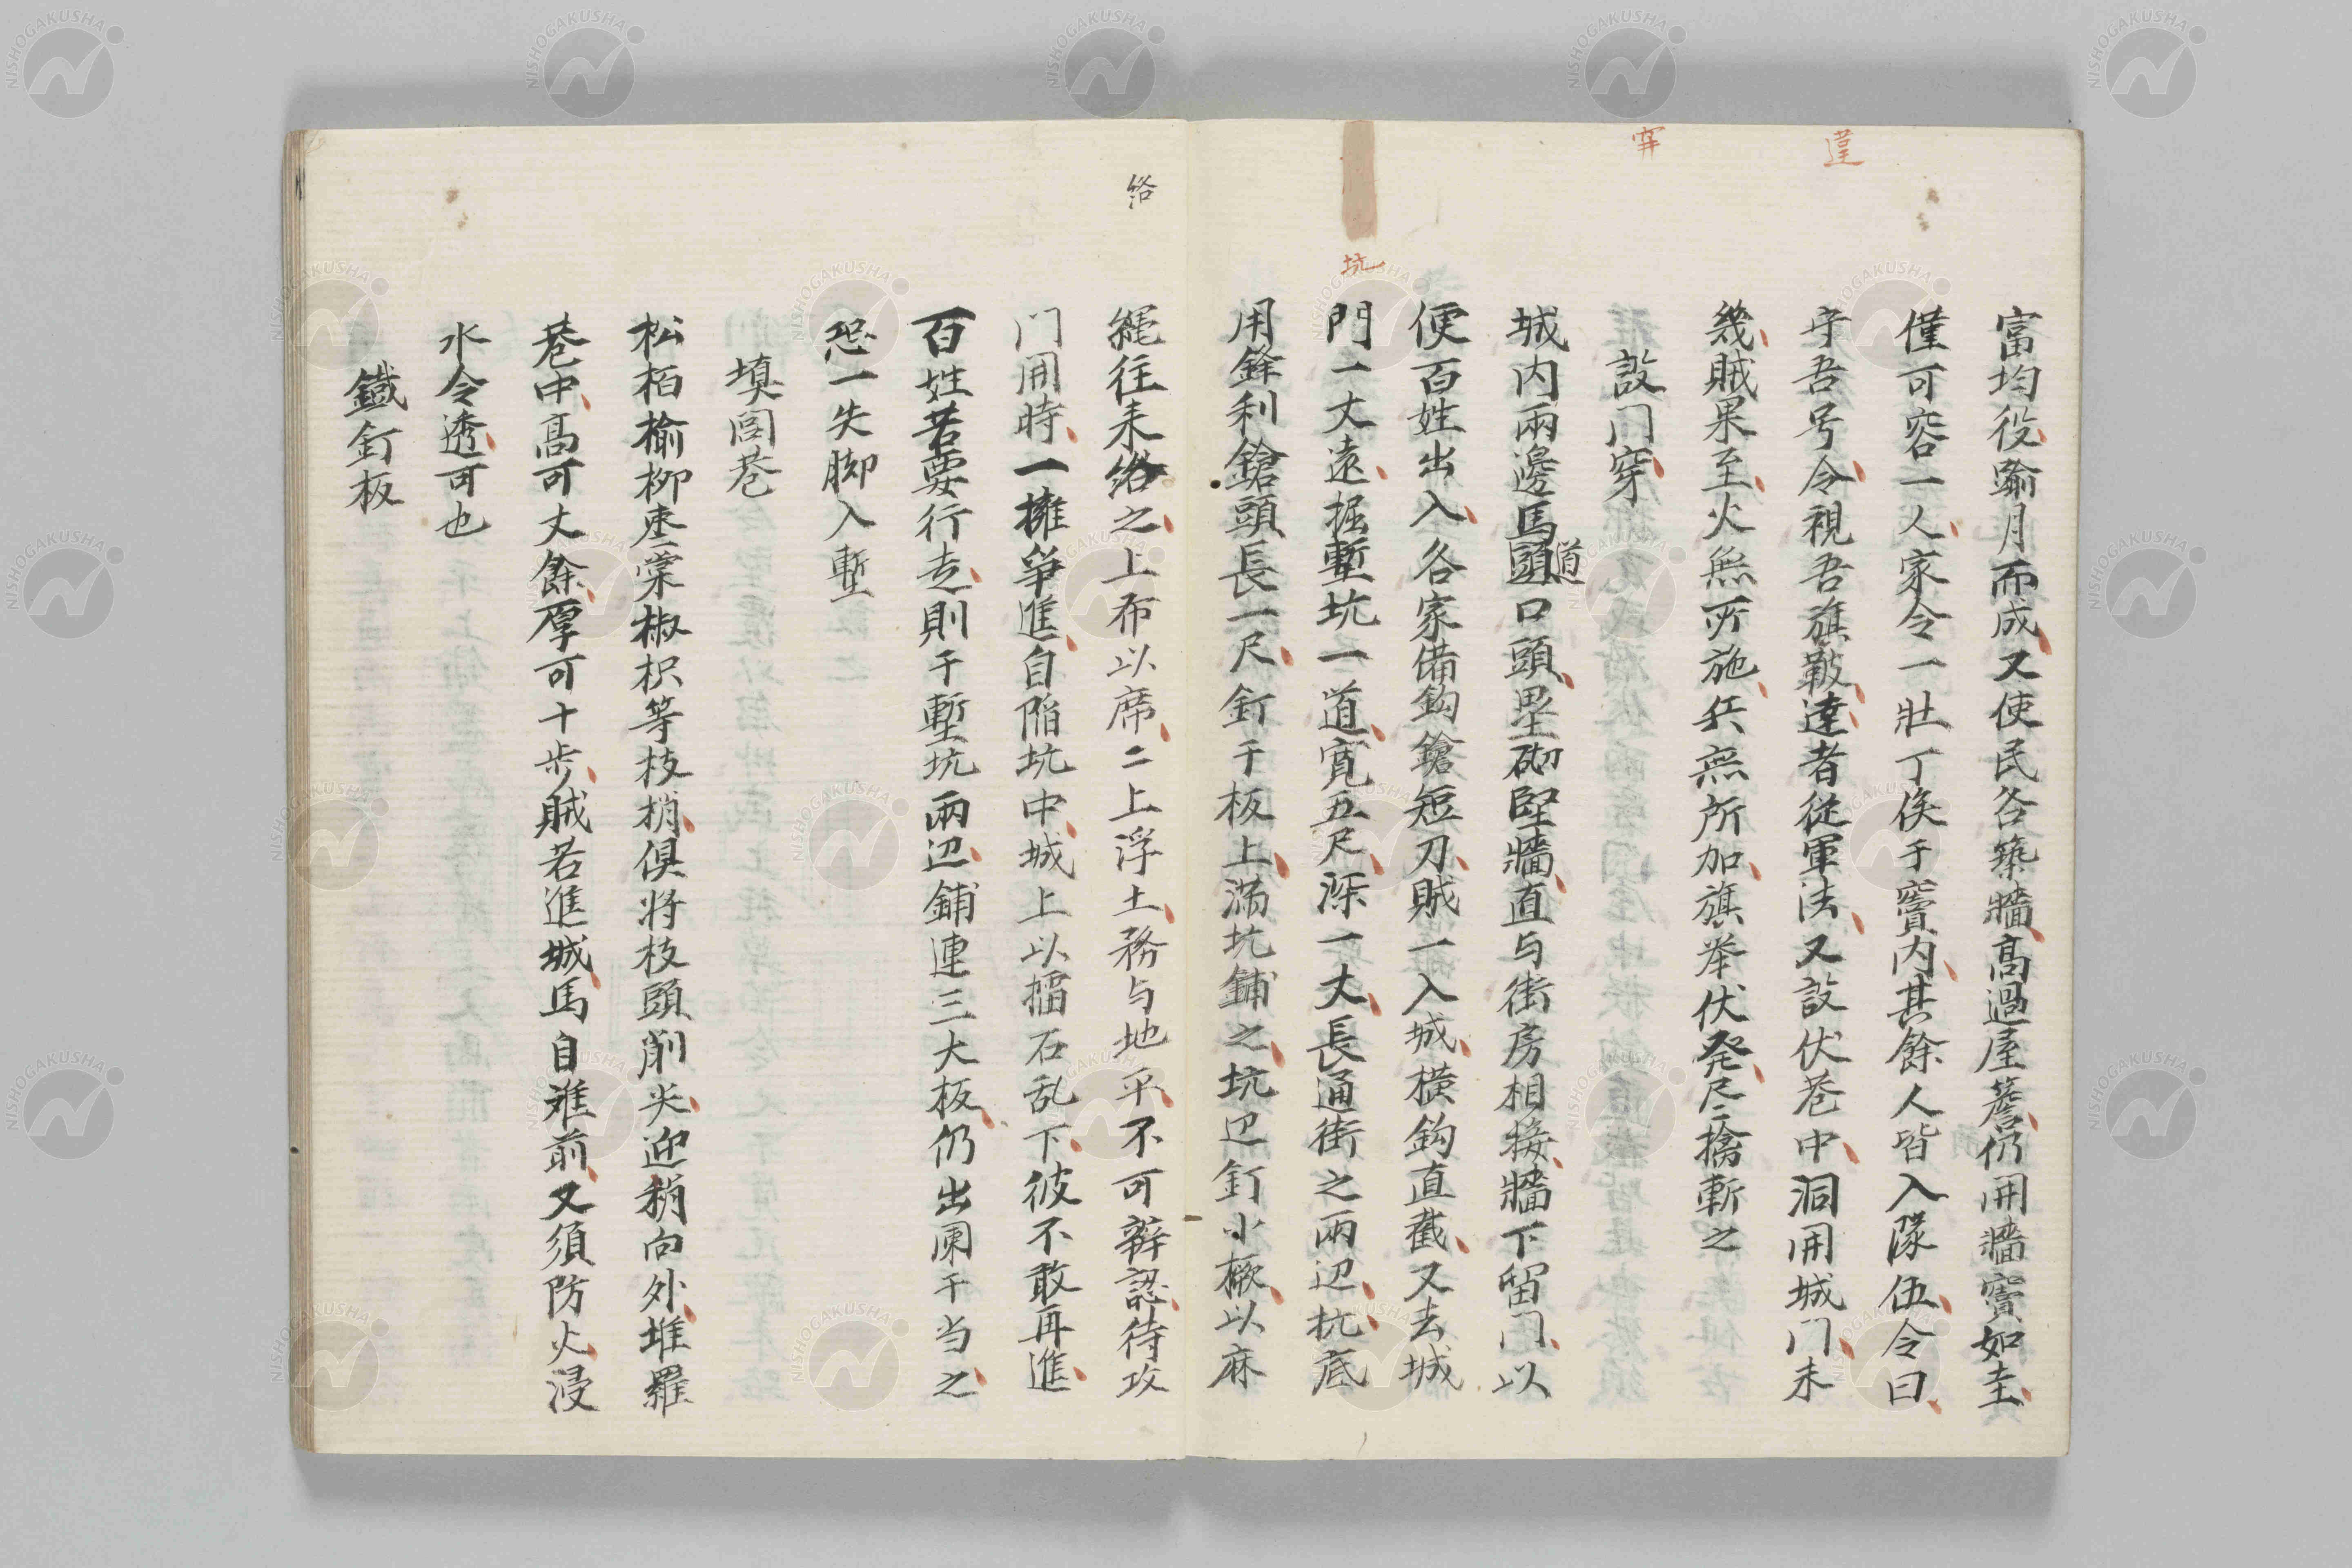 富均役踰月而成又使民各築牆高過屋簷仍開牆竇如圭
僅可容一人家令一壯丁俟于竇内其餘人皆入隊伍令曰
守吾号令視吾旗皷達者從軍法又設伏巷中洞開城门未
幾賊果至火無所施兵無所加旗举伏発尽擒斬之
設门穿
城内兩邊馬頭口頭壘砌堅牆直与街房相接牆下留门以
道
便百姓出入各家備鈎鎗短刀賊一入城横鈎直截又去城
門一丈遠掘塹坑一道寬五尺深一丈長通街之兩辺坑底
用鋒利鎗頭長一尺釘于板上滿坑鋪之坑辺釘小橛以麻
違
穽
坑
絡
繩往来絡之上布以席二上浮土務与地平不可辨認待攻
门開時一擁爭進自陷坑中城上以擂石乱下彼不敢再進
百姓若要行走則于塹坑兩辺鋪連三大板仍出闌干当之
恐一失脚入塹
填閭巷
松栢榆柳枣棠椒枳等枝梢俱将枝頭削尖迎稍向外堆羅
巷中高可丈餘厚可十步賊若進城馬自难前又須防火浸
水令透可也
鐵釘板
NISHOGAKUSHA